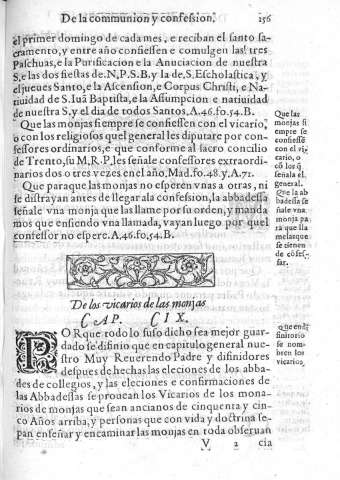 De la communion y confession. 156
el primer domingo de cada mes, e reciban el santo sa-
cramento, y entre año confiessen e comulgen las tres
Paschuas, e la Purificacion e la Anuciacion de nuestra
S, e las dos fiestas de N. P. S. B. y la de, S. Escholastica, y
el jueues Santo, e la Ascension, e Corpus Christi, e Na-
tiuidad de S. Iuã Baptista, e la Assumpcion e natiuidad
de nuestra S, y el dia de todos Santos, A. 46. fo. 54. B.
Que las monjas siempre se confiessen con el vicario,
o con los religiosos quel general les diputare por con-
fessores ordinarios, e que conforme al sacro concilio
de Trento, su M, R, P, les señale confessores extraordi-
narios dos o tres vezes en el año, Mad. fo. 48. y A. 71.
Que paraque las monjas no esperen vnas a otras, ni
se distrayan antes de llegar ala confession, la abbadessa
señale vna monja que las llame por su orden, y manda
mos que ensiendo vna llamada, vayan luego por quel
confessor no espere. A. 46. fo, 54. B.
Que las
monjas si
empre se
confiessẽ
con el vi-
cario, o
cõ los q̃
señala el
general.
Que la ab
badessa se
ñale vna
monja pa
ra que lla
me las que
se tienen
de cõfes-
sar.
De los vicarios de las monjas
CAP. CIX.
POR que todo lo suso dicho sea mejor guar-
dado se difinio que en capitulo general nue-
stro Muy Reuerendo Padre y difinidores
despues de hechas las elecciones de los abba-
des de collegios, y las eleciones e confirmaciones de
las Abbadessas se prouean los Vicarios de los mona-
rios de monjas que sean ancianos de cinquenta y cin-
co Años arriba, y personas que con vida y doctrina se-
pan enseñar y encaminar las monjas en toda obseruan
q̃ en el di
finitorio
se nom-
bren los
vicarios,
V 2 cia